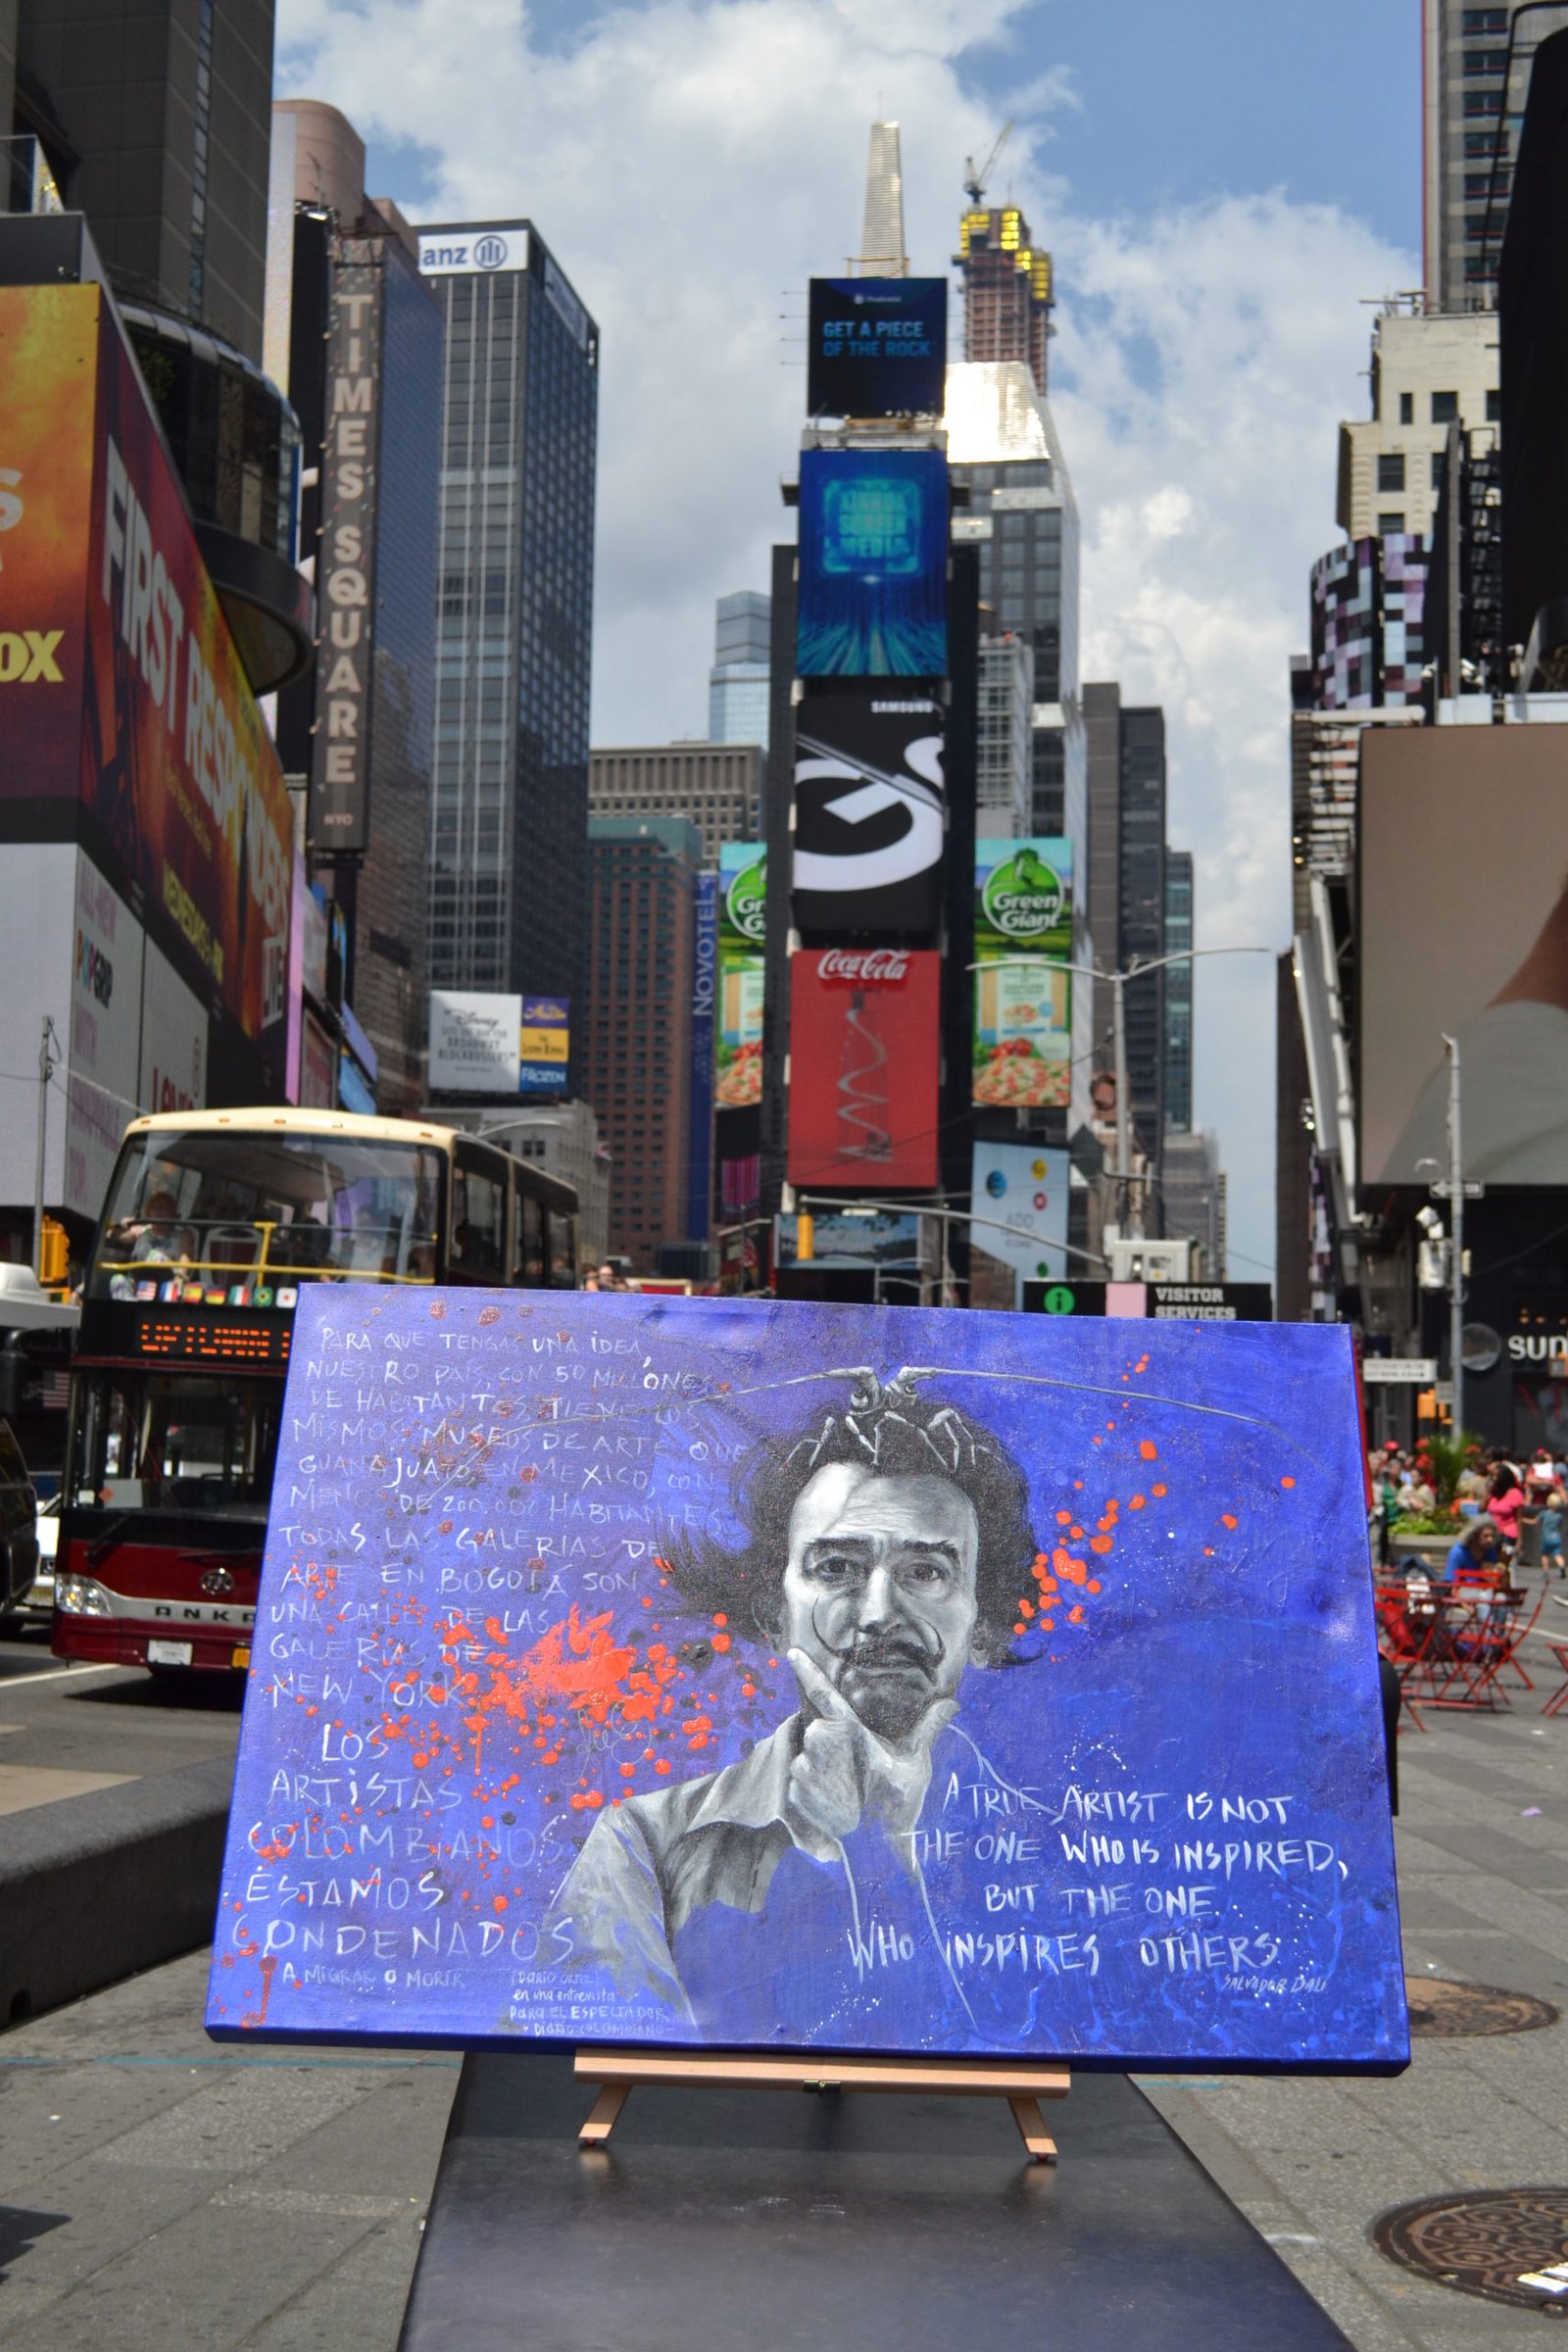 anz
TIMES SQUARE
NYC
GET A PIECE
OF THE ROCK
XINHUA
SCREEN
MEDIA
SAMSUNG
FIRST RESPONDERS
LIVE
WEDNESDAYS FOX
OX
NOVOTEL
Green
Giant
Coca-Cola
Disney
BROADWAY
BLOCKBUSTERS"
FROZEN
VISITOR
SERVICES
sun
UPTOWN
ANKA
PARA QUE TENGAS UNA IDEA,
NUESTRO PAÍS, CON 50 MILLONES
DE HABITANTES, TIENE LOS
MISMOS MUSEOS DE ARTE QUE
GUANAJUATO, EN MEXICO, CON
MENOS DE 200.000 HABITANTES
TODAS LAS GALERIAS DE
ARTE EN BOGOTÁ SON
UNA CALLE DE LAS
GALERIAS DE
NEW YORK
LOS
ARTISTAS
COLOMBIANOS
ESTAMOS
CONDENADOS
A MIGRAR O MORIR
(DARIO ORTIZ)
en una entrevista
PARA EL ESPECTADOR
- DIARIO COLOMBIANO-
A TRUE ARTIST IS NOT
THE ONE WHO IS INSPIRED,
BUT THE ONE
WHO INSPIRES OTHERS
SALVADOR DALI